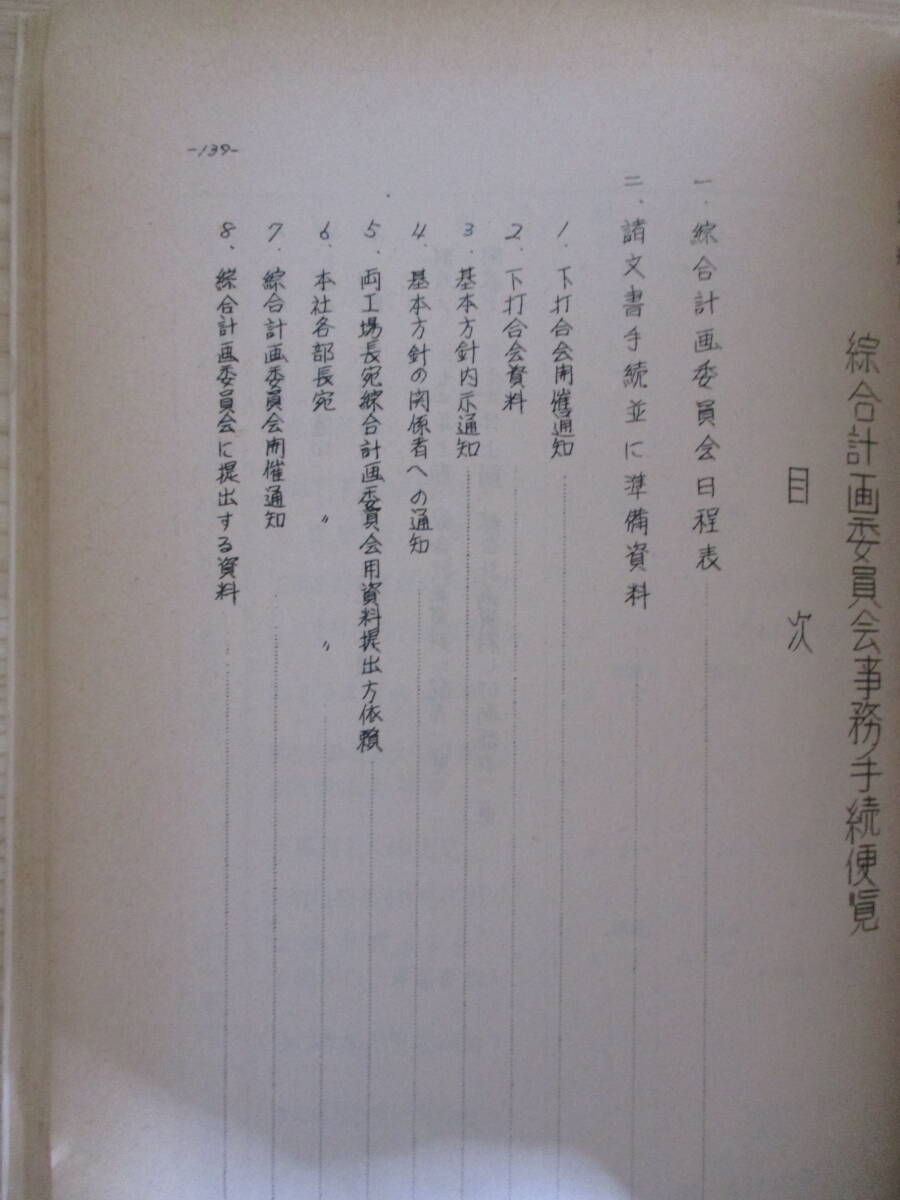 綜合計画委員会事務手続便覧
目次
一、綜合計画委員会日程表
二、諸文書手続並に準備資料
1、下打合会開催通知
2、下打合会資料
3、基本方針内示通知
4、基本方針の関係者への通知
5、両工場長宛綜合計画委員会用資料提出方依頼
6、本社各部長宛 〃 〃
7、綜合計画委員会開催通知
8、綜合計画委員会に提出する資料
-139-